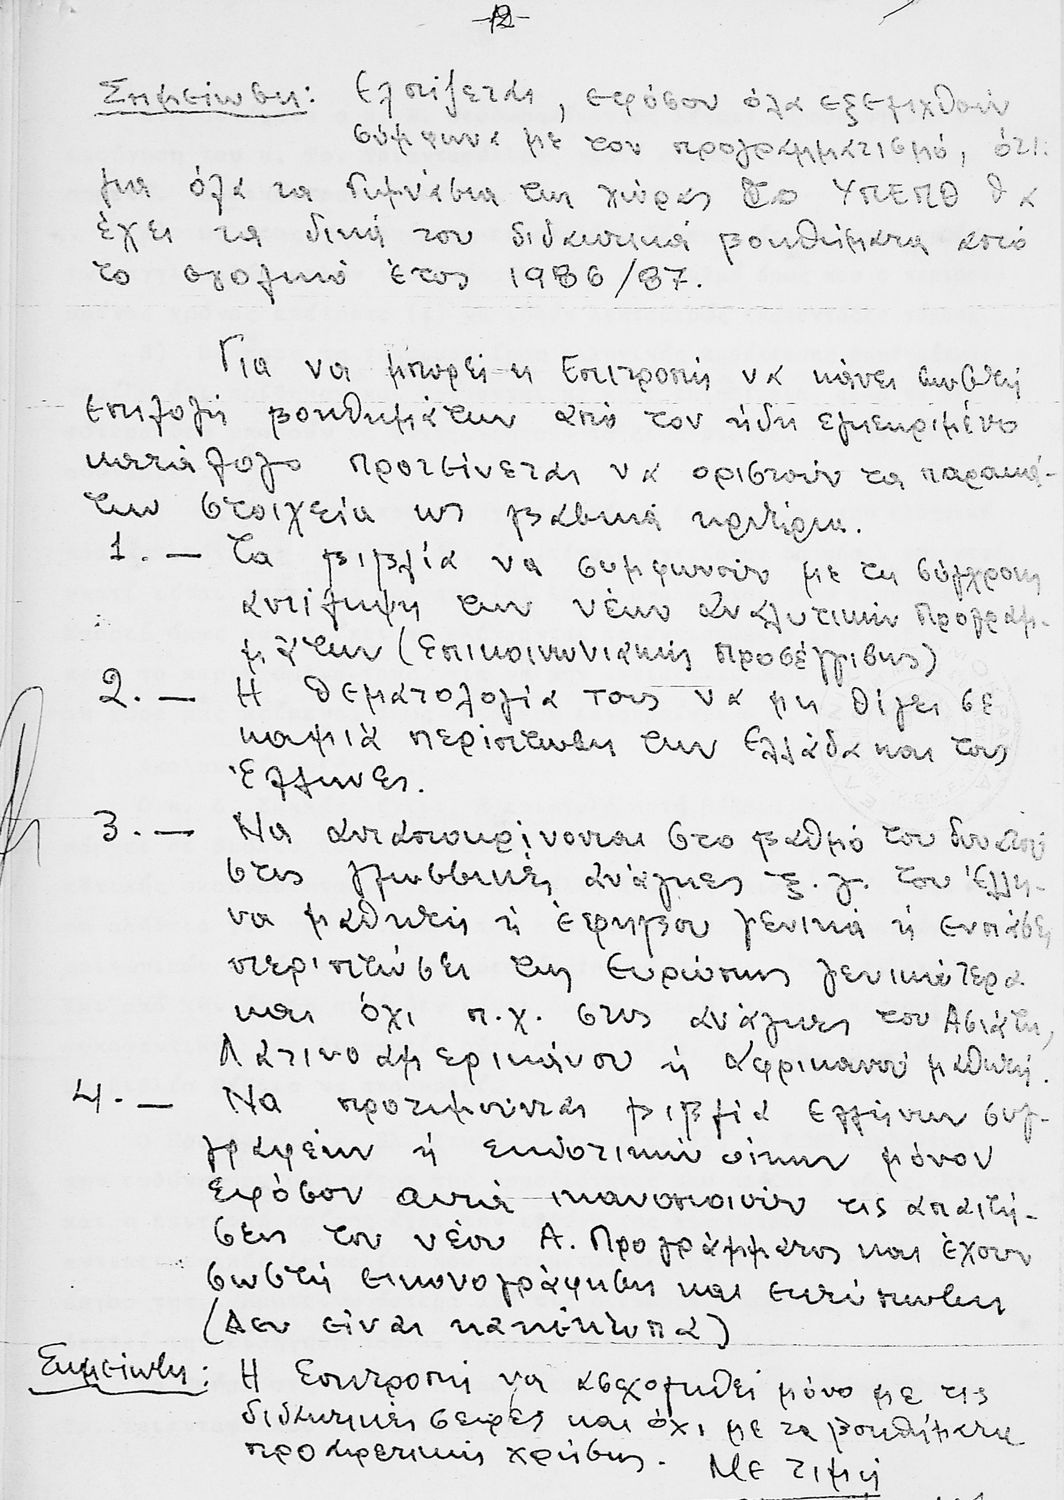 -12-
Σημείωση: Ελπίζεται, εφόσον όλα εξελιχθούν
σύμφωνα με τον προγραμματισμό, ότι
για όλα τα Γυμνάσια της χώρας το ΥΠΕΠΘ θα
έχει τα δικά του διδακτικά βοηθήματα από
το σχολικό έτος 1986/87.
Για να μπορεί η Επιτροπή να κάνει σωστή
επιλογή βοηθημάτων από τον ήδη εγκεκριμένο
κατάλογο προτείνεται να οριστούν τα παρακά-
των στοιχεία ως βασικά κριτήρια.
1. — Τα βιβλία να συμφωνούν με τη σύγχρονη
αντίληψη των νέων Αναλυτικών Προγραμ-
μάτων (Επικοινωνιακής προσέγγισης)
2. — Η θεματολογία τους να μη θίγει σε
καμμιά περίπτωση την Ελλάδα και τους
Έλληνες.
3. — Να ανταποκρίνονται στο βαθμό του δυνατού
στις γλωσσικές ανάγκες ξ. γ. του Έλλη-
να μαθητή ή έφηβου γενικά ή εν πάσει
περιπτώσει της Ευρώπης γενικότερα
και όχι π.χ. στις ανάγκες του Ασιάτη,
Λατινοαμερικάνου ή αφρικανού μαθητή.
4. — Να προτιμούνται βιβλία ελλήνων συγ-
γραφέων ή εκδοτικών οίκων μόνον
εφόσον αυτά ικανοποιούν τις απαιτή-
σεις του νέου Α. Προγράμματος και έχουν
σωστή εικονογράφηση και εκτύπωση
(Δεν είναι κακέκτυπα)
Σημείωση: Η Επιτροπή να ασχοληθεί μόνο με τις
διδακτικές σειρές και όχι με τα βοηθήματα
προαιρετικής χρήσης.
Με τιμή